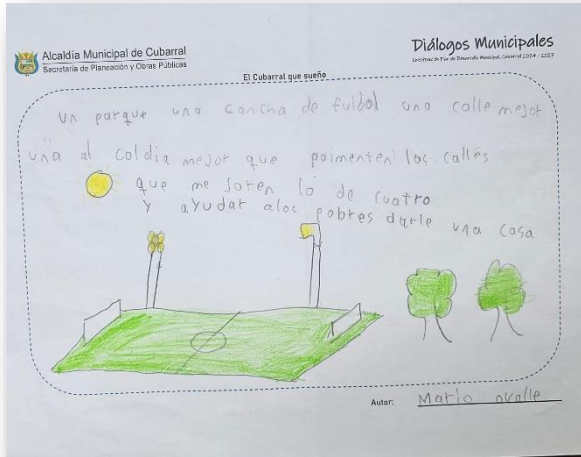 Alcaldía Municipal de Cubarral
Secretaría de Planeación y Obras Públicas
Diálogos Municipales
El Cubarral que sueño
un parque una cancha de fulbol una calle mejor
uña al caldia mejor que paimenten las calles
que me joren lo de cuatro
y ayudar alos pobres darle una casa
Autor: Mario ovalle